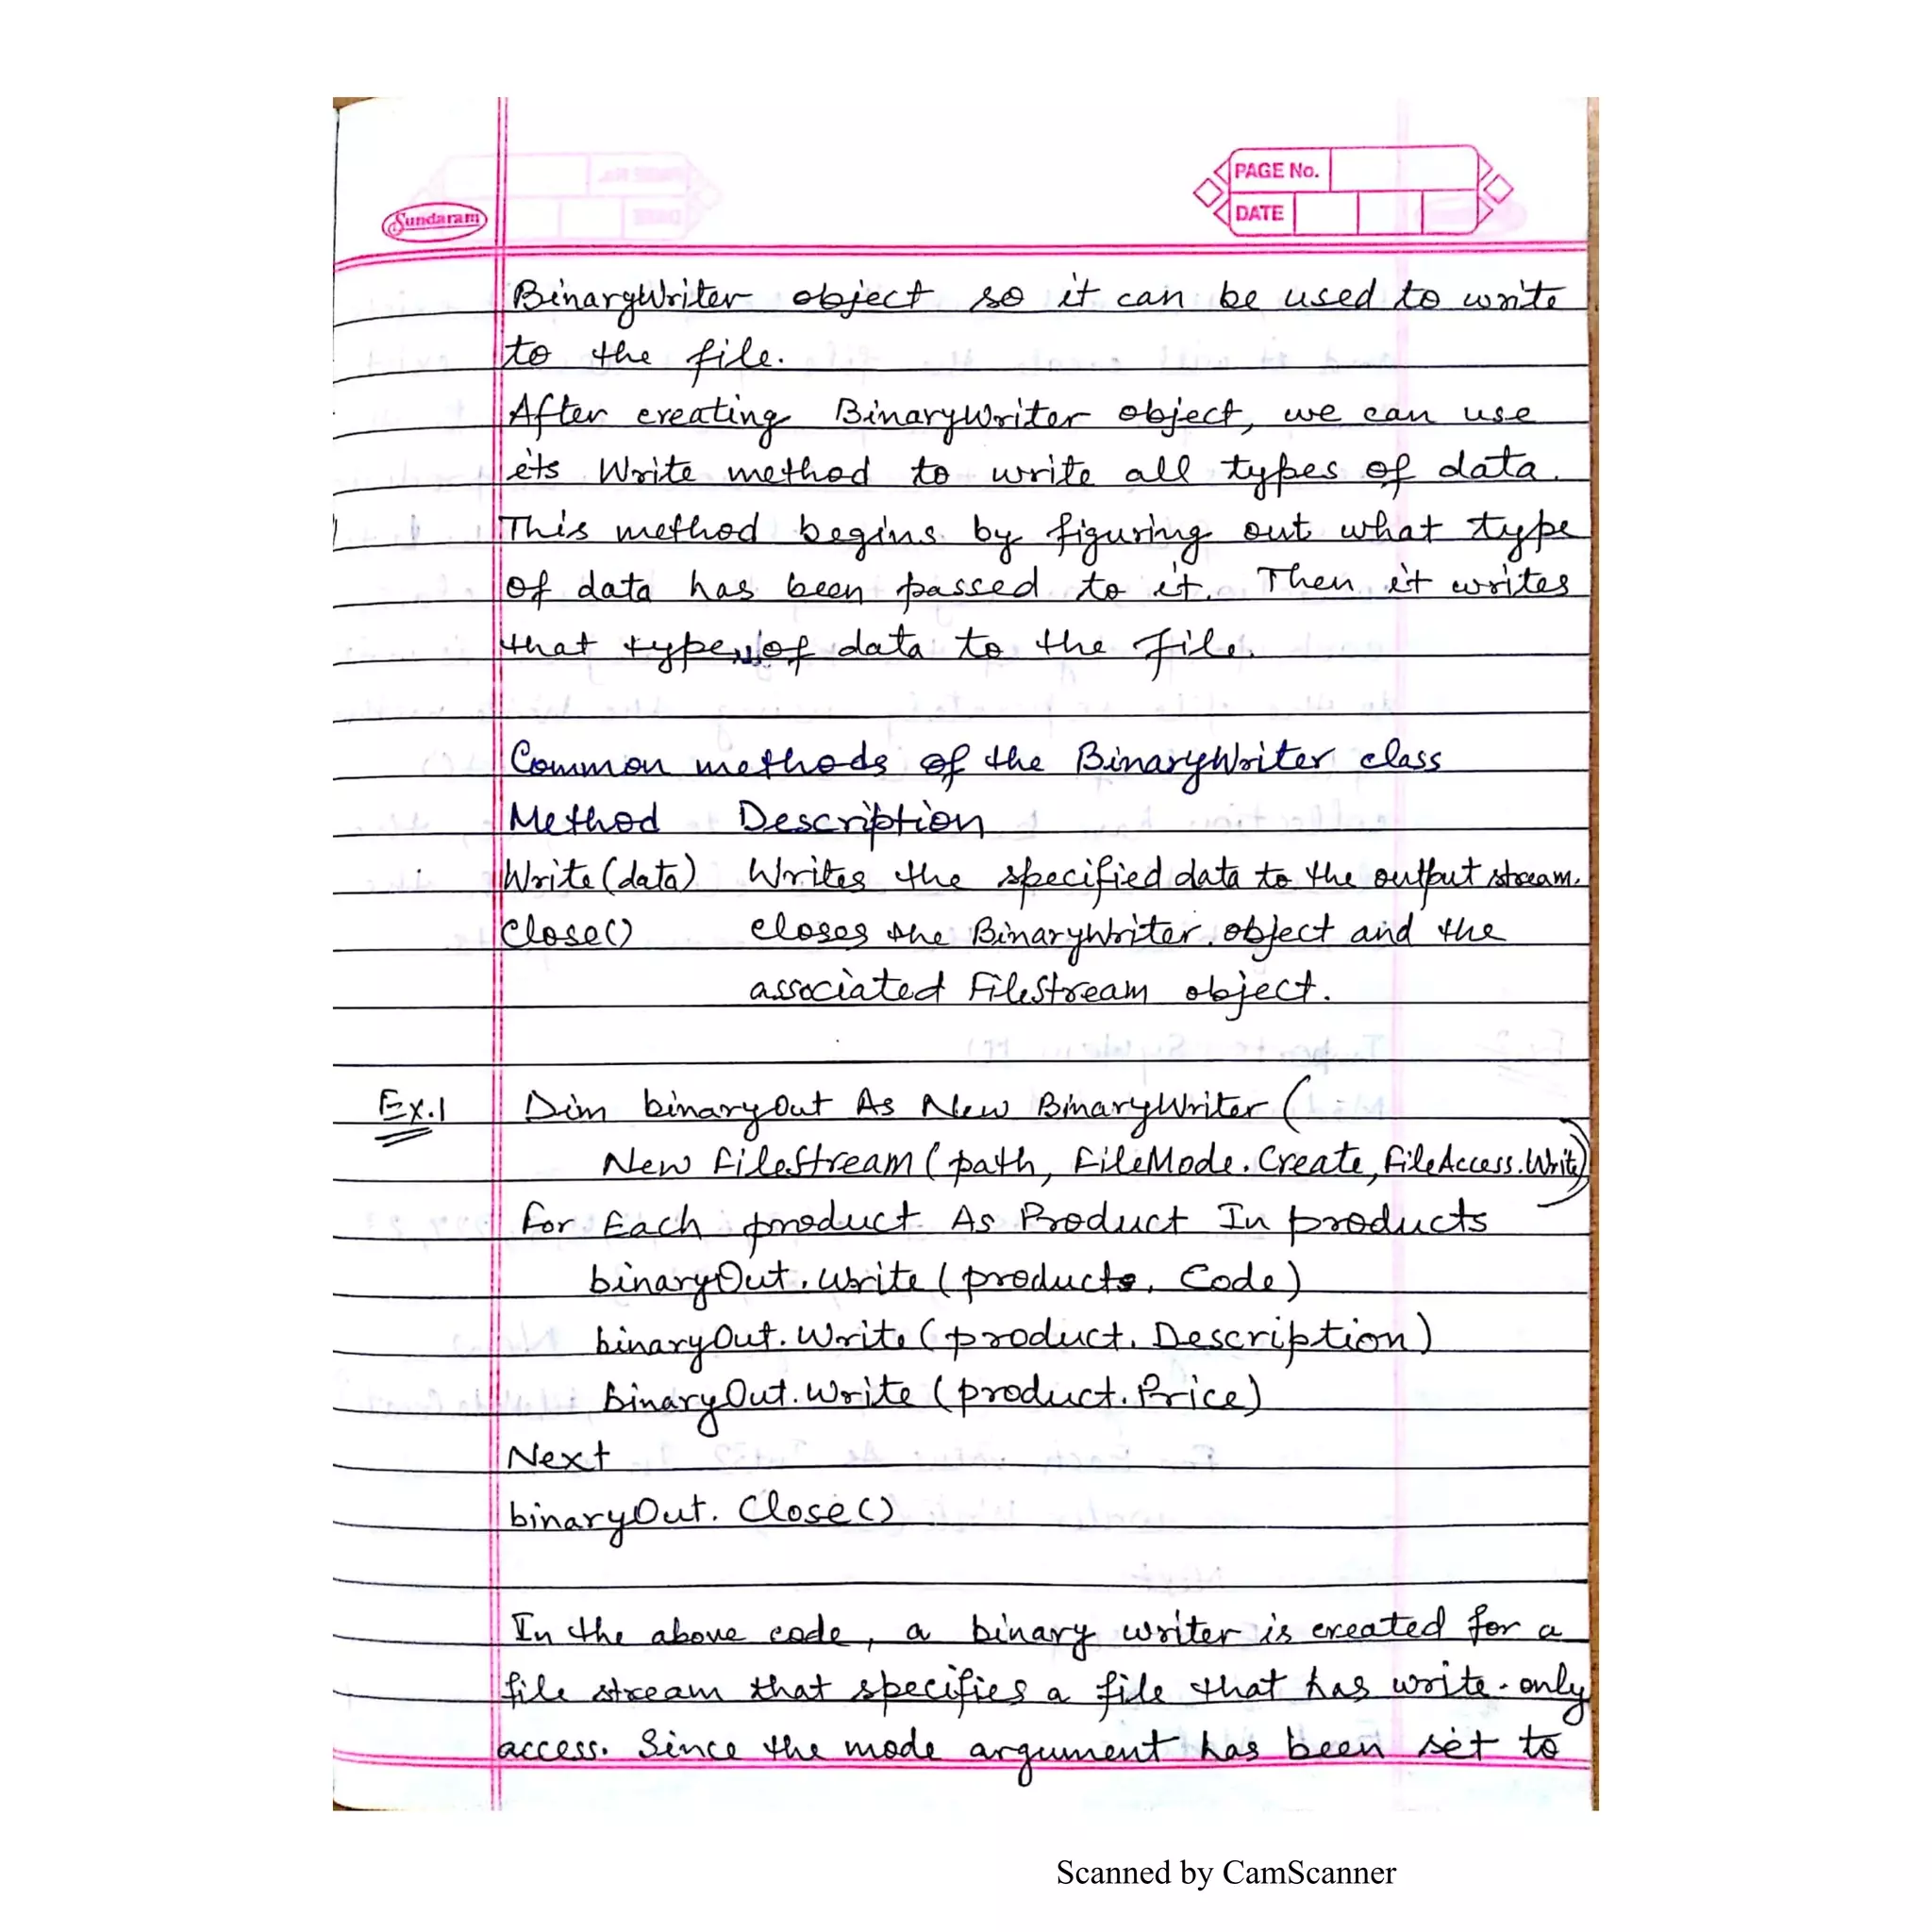 Sundaram
PAGE No.
DATE
BinaryWriter object so it can be used to write
to the file.
After creating BinaryWriter object, we can use
its Write method to write all types of data.
This method begins by figuring out what type
of data has been passed to it. Then it writes
that type of data to the file.
Common methods of the BinaryWriter class
Method Description
Write(data) Writes the specified data to the output stream.
Close() closes the BinaryWriter object and the
associated FileStream object.
Ex.1 Dim binaryOut As New BinaryWriter (
New FileStream (path, FileMode.Create, FileAccess.Write))
For Each product As Product In products
binaryOut.Write (product. Code)
binaryOut.Write (product. Description)
binaryOut.Write (product.Price)
Next
binaryOut. Close()
In the above code, a binary writer is created for a
file stream that specifies a file that has write-only
access. Since the mode argument has been set to
Scanned by CamScanner